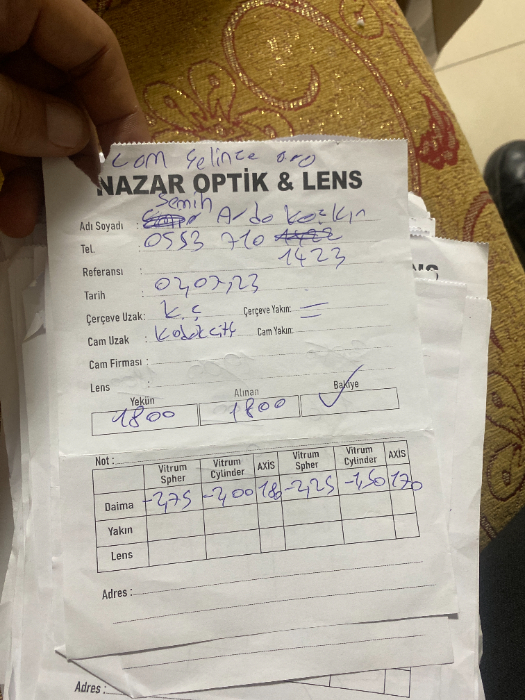 Cam gelince ara
NAZAR OPTİK & LENS
Semih
Adı Soyadı : Arda
Tel. : 0553 710 1422
1423
Referansı :
Tarih : 02,07,23
Çerçeve Uzak: K.Ç Çerçeve Yakın: =
Cam Uzak : Cam Yakın:
Cam Firması :
Lens :
Yekün Alınan Bakiye
1800 1800 ✓
Not :
Vitrum Spher Vitrum Cylinder AXİS Vitrum Spher Vitrum Cylinder AXİS
Daima -2,75 -2,00 180 -2,25 -1,50 170
Yakın
Lens
Adres :
Adres :